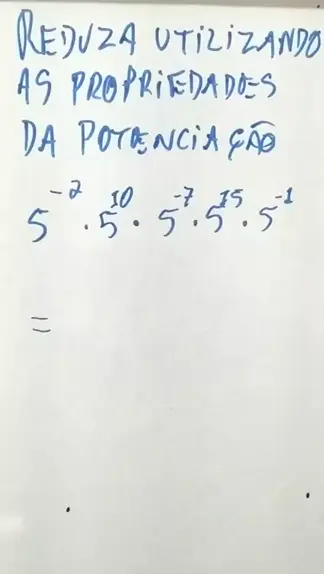 REDUZA UTILIZANDO
AS PROPRIEDADES
DA POTENCIAÇÃO
5⁻² · 5¹⁰ · 5⁻⁷ · 5¹⁵ · 5⁻¹
=